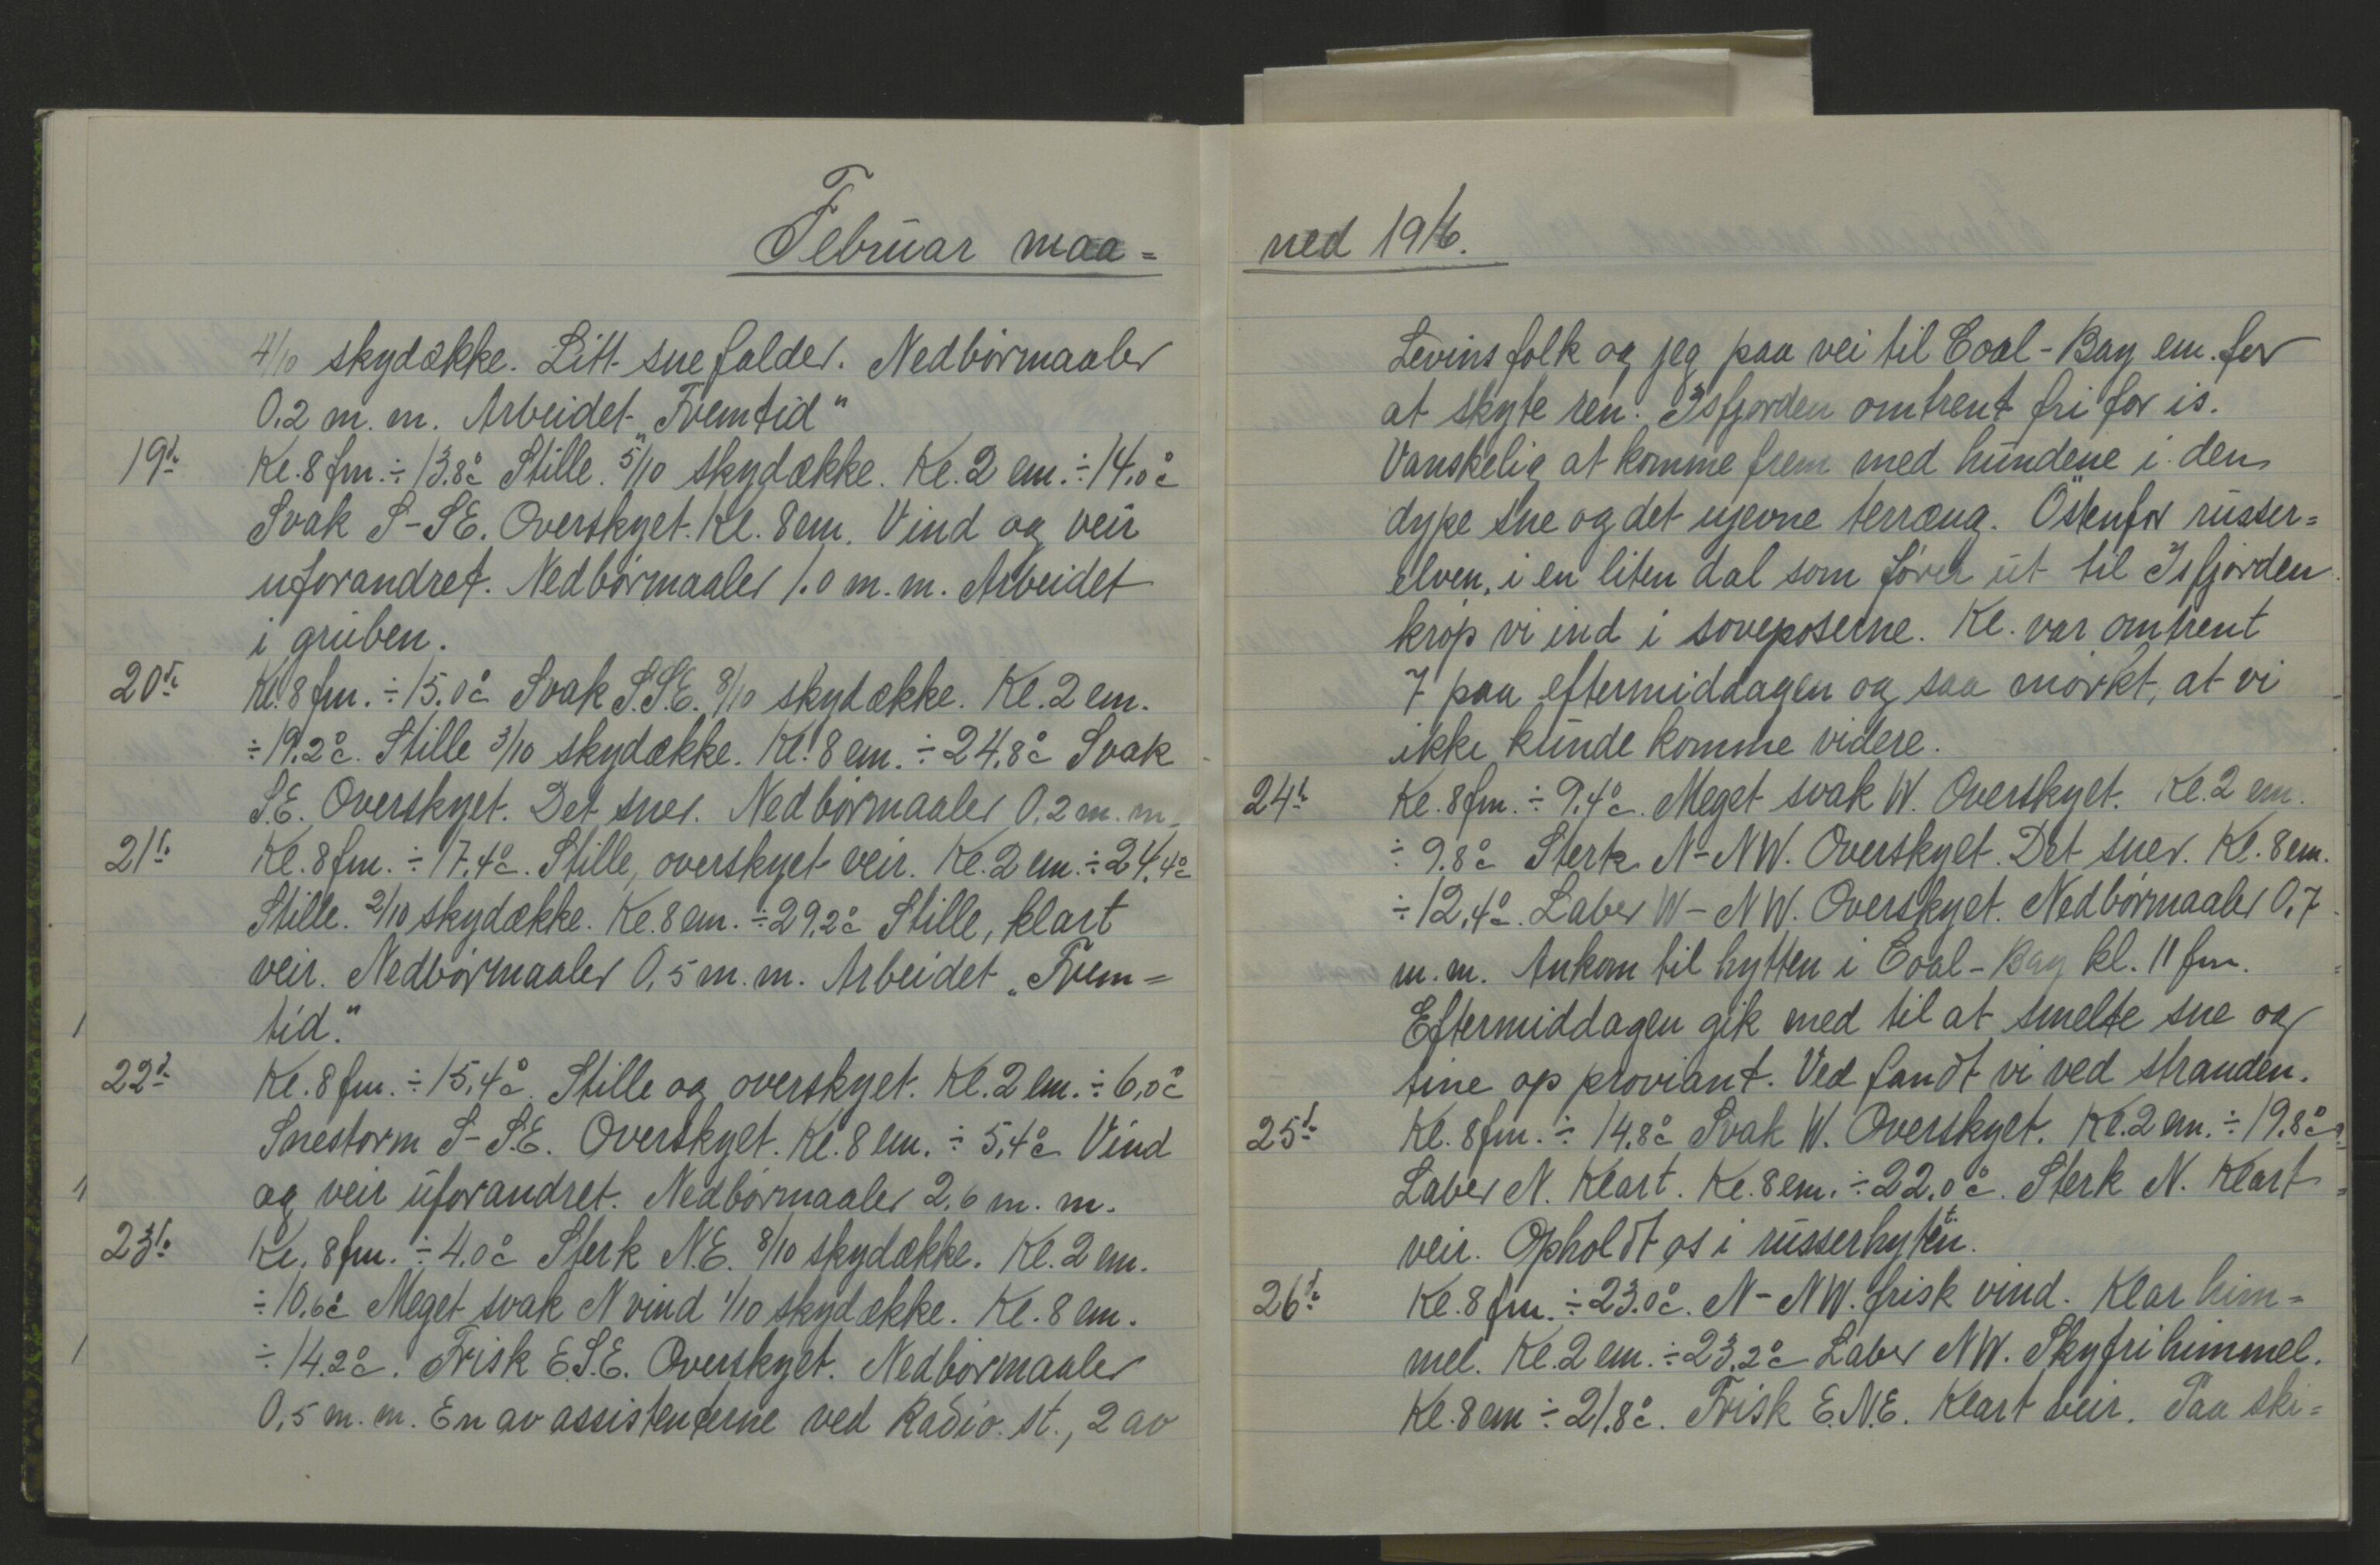 Februar maa=
4/10 skydække. Litt sne falder. Nedbørmaaler
0,2 m. m. Arbeidet „Fremtid"
19de Kl. 8 fm. ÷ 13.8°c Stille. 5/10 skydække. Kl. 2 em. ÷ 14.0°c
Svak S-SE. Overskyet. Kl. 8 em. Vind og veir
uforandret. Nedbørmaaler 1.0 m. m. Arbeidet
i gruben.
20de Kl. 8 fm. ÷ 15.0°c Svak S.S.E. 8/10 skydække. Kl. 2 em.
÷ 19.2°c. Stille 3/10 skydække. Kl. 8 em. ÷ 24.8°c Svak
S.E. Overskyet. Det sner. Nedbørmaaler 0,2 m. m.
21de Kl. 8 fm. ÷ 17.4°c. Stille, overskyet veir. Kl. 2 em. ÷ 24.4°c
Stille. 2/10 skydække. Kl. 8 em. ÷ 29.2°c Stille, klart
veir. Nedbørmaaler 0,5 m. m. Arbeidet „Frem=
tid."
22de Kl. 8 fm. ÷ 15,4°c. Stille og overskyet. Kl. 2 em. ÷ 6,0°c
Snestorm S-S.E. Overskyet. Kl. 8 em. ÷ 5,4°c Vind
og veir uforandret. Nedbørmaaler 2,6 m. m.
23de Kl. 8 fm. ÷ 4.0°c Sterk N.E. 8/10 skydække. Kl. 2 em.
÷ 10,6°c Meget svak N vind 1/10 skydække. Kl. 8 em.
÷ 14.2°c. Frisk E.S.E. Overskyet. Nedbørmaaler
0,5 m. m. En av assistenterne ved Radio. st., 2 av
ned 1916.
Levins folk og jeg paa vei til Coal-Bay em. for
at skyte ren. Isfjorden omtrent fri for is.
Vanskelig at komme frem med hundene i den
dype sne og det ujevne terræng. Östenfor russer=
elven, i en liten dal som fører ut til Isfjorden
krøp vi ind i soveposerne. Kl. var omtrent
7 paa eftermiddagen og saa mørkt, at vi
ikke kunde komme videre.
24de Kl. 8 fm. ÷ 9,4°c. Meget svak W. Overskyet. Kl. 2 em.
÷ 9.8°c Sterk N-NW. Overskyet. Det sner. Kl. 8 em.
÷ 12,4°c. Laber W-NW. Overskyet. Nedbørmaaler 0,7
m. m. Ankom til hytten i Coal-Bay kl. 11 fm.
Eftermiddagen gik med til at smelte sne og
tine op proviant. Ved fandt vi ved stranden.
25de Kl. 8 fm. ÷ 14,8°c Svak W. Overskyet. Kl. 2 em. ÷ 19.8°c
Laber N. Klart. Kl. 8 em. ÷ 22.0°c. Sterk N. Klart
veir. Opholdt os i russerhytten.
26de Kl. 8 fm. ÷ 23.0°c. N-NW. frisk vind. Klar him=
mel. Kl. 2 em. ÷ 23.2°c Laber NW. Skyfri himmel.
Kl. 8 em ÷ 21.8°c. Frisk E.N.E. Klart veir. Paa ski=